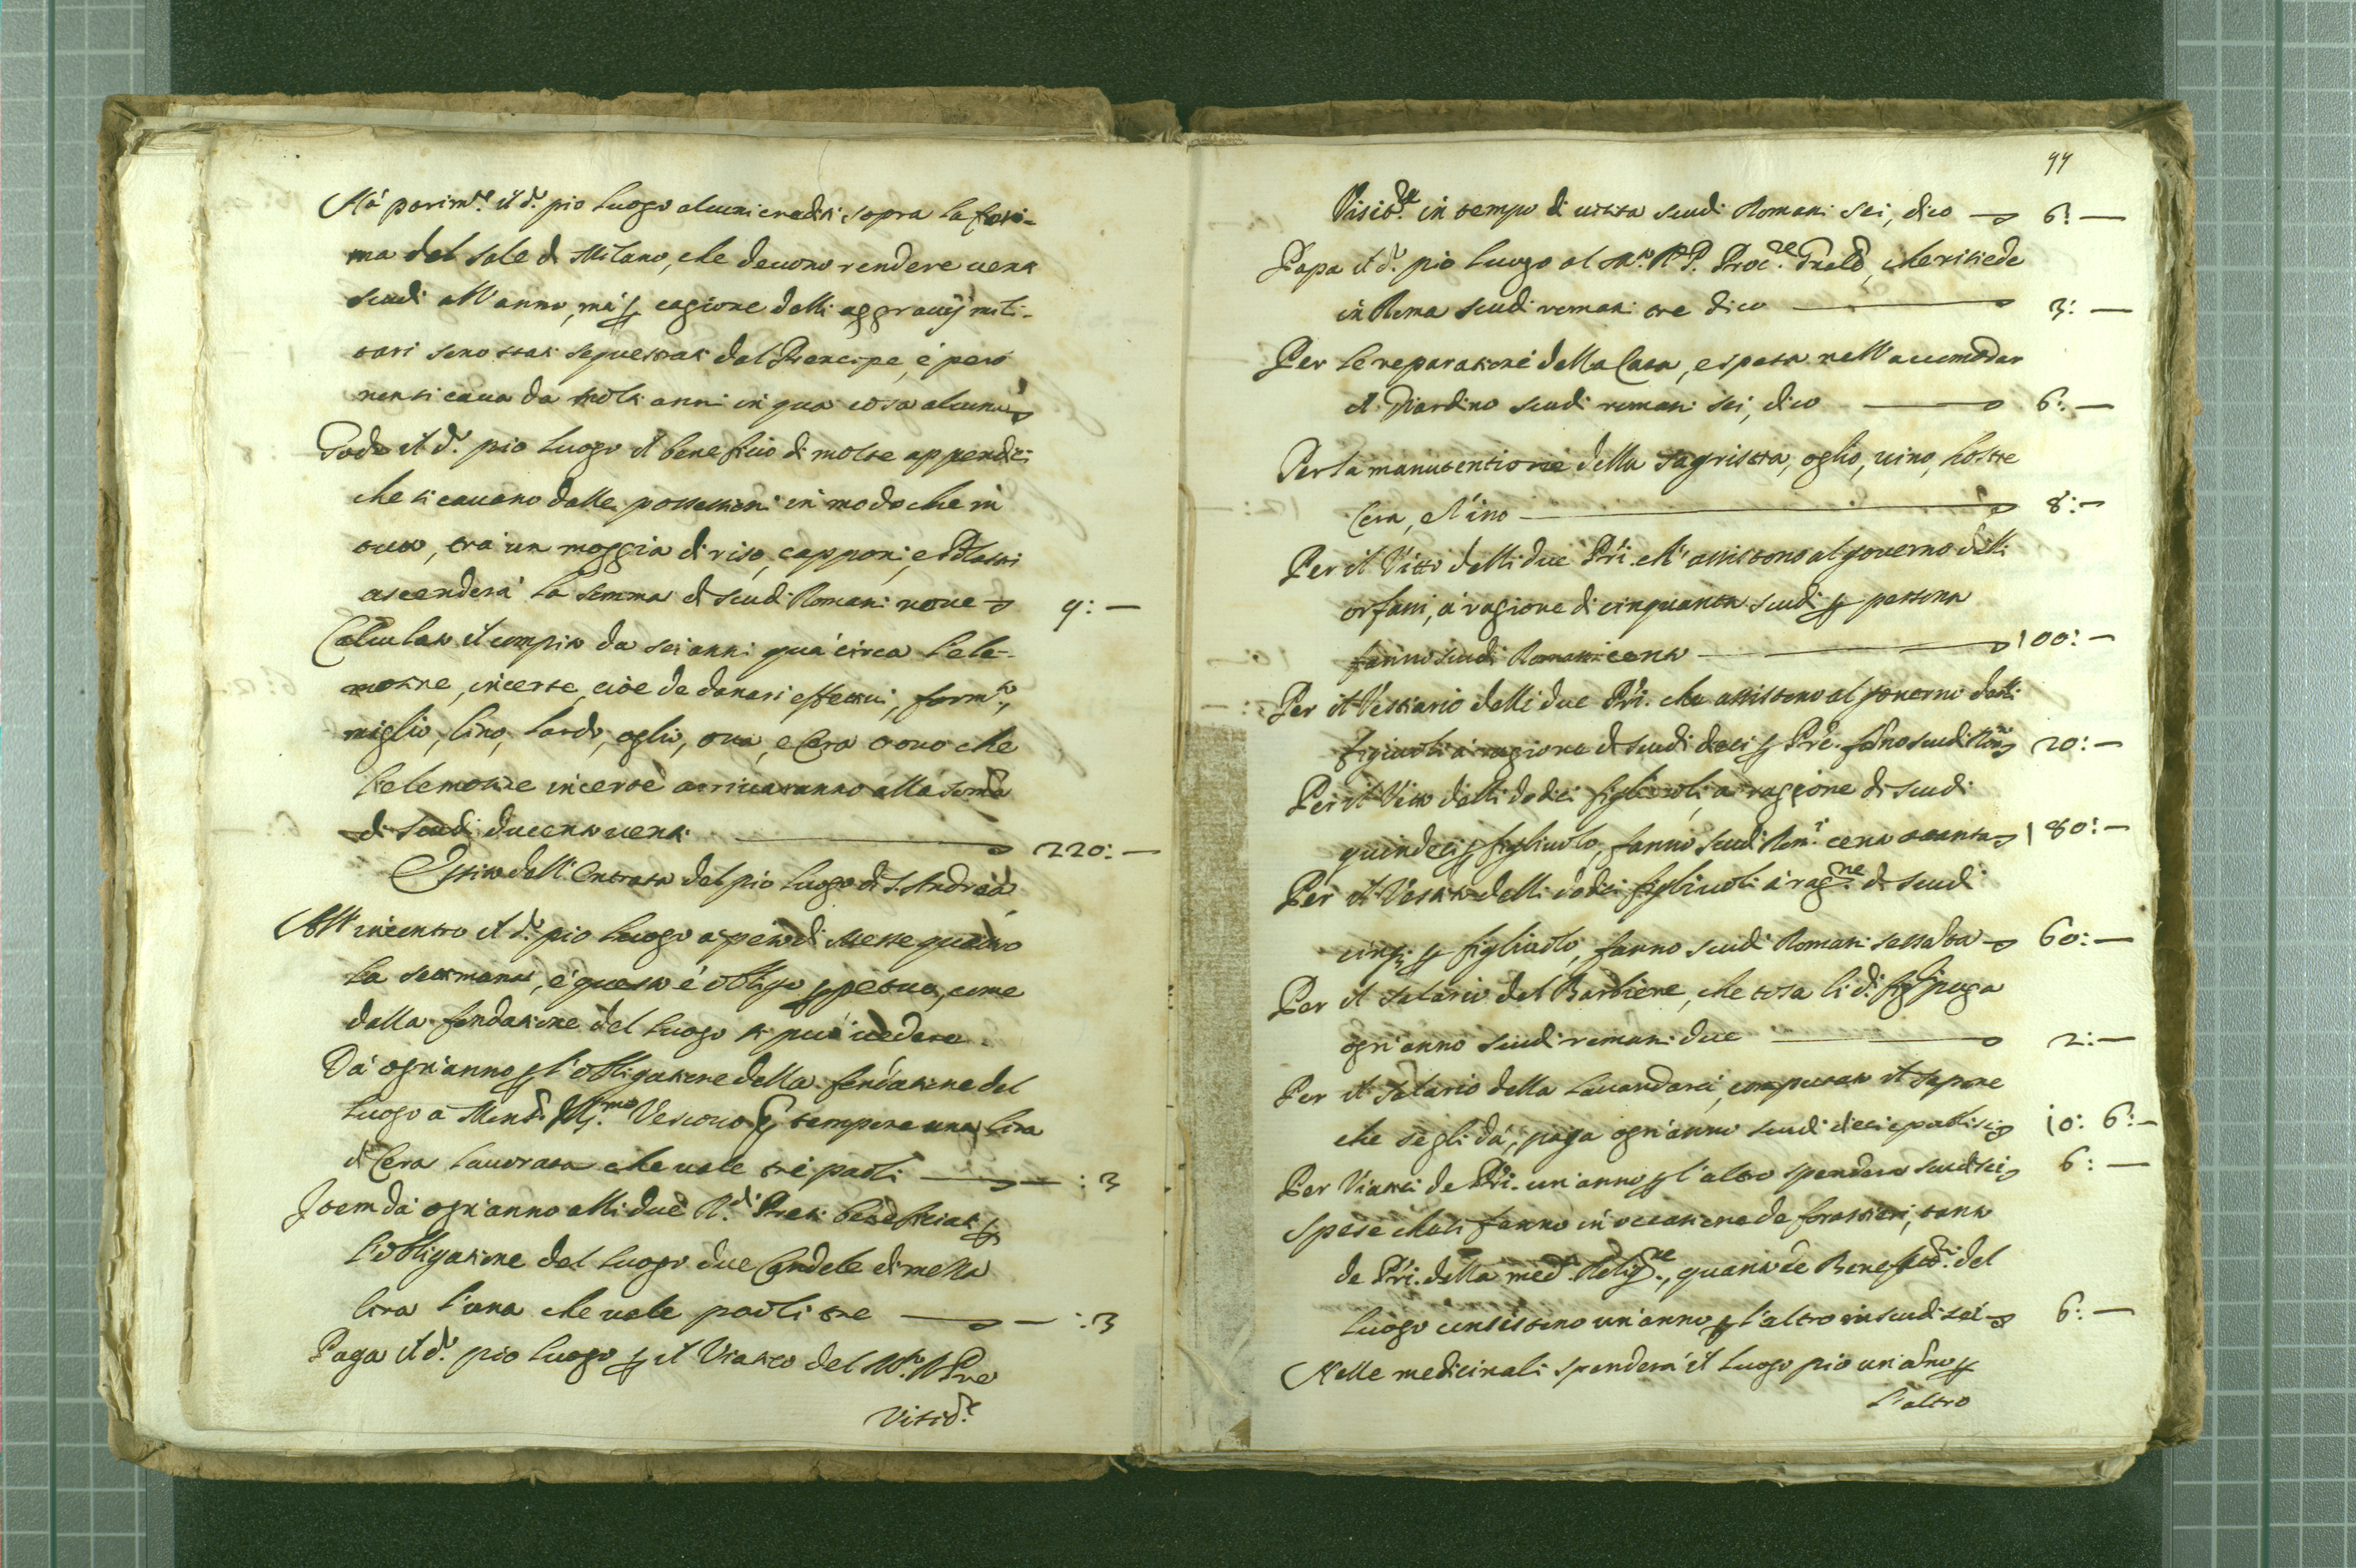 Há parim.te il d.o pio luogo alcuni crediti sopra la fari-
ma del sale di Milano, che devono rendere venti
scudi all'anno, má p cagione delli aggravij mili-
tari sono stati sequestrati dal Prencipe, é peró
non si cava da molti anni in qua cosa alcuna
Gode il d.o pio luogo il beneficio di molte appendici
che si cavano dalle possessioni in modo che in
tutto, trá un moggia di riso, capponi, e Polastri
ascenderá la somma di scudi Romani nove 9: —
Calculato il compito da sei anni quá circa l'ele-
mosine, incerte, cioé de danari effettivi, form.to,
miglio, lino, lardo, oglio, ova, e Cera trovo che
l'elemosine incerte arrivaranno alla soma
di scudi ducento venti 220: —
Esito dell'Entrata del pio luogo di S. Andrea
All'incontro il d.o pio luogo á peso di Messe quatro
la settimana, é questo é obligo ppetuo, come
dalla fondatione del luogo si puó vedere.
Dá ogn'anno p l'obligatione della fondatione del
luogo a Mons.r Ill.mo Vescovo p tempore una lira
di Cera lavorata che vale tré paoli — : 3
Item dá ogn'anno alli due R.di Preti beneficiati p
l'obligatione del luogo due Candele di mezza
lira l'una che vale paoli tre — : 3
Paga il d.o pio luogo p il Viatico del M.to R Pre
Visit.e
99
Visit.re in tempo di visita scudi Romani sei, dico 6: —
Paga il d.o pio luogo al M.to R. P. Proc.re Gnale, che risiede
in Roma scudi romani tre dico 3: —
Per le reparationi della Casa, e spesa nell'accomodar
il Giardino scudi romani sei, dico 6: —
Per la manutentione della sagristia, oglio, vino, hostie
Cera, e Vino 8: —
Per il Vitto delli due Pri. ch'assistono al governo delli
orfani, á ragione di cinquanta scudi p persona
fanno scudi Romani cento 100: —
Per il Vestiario delli due Pri. che assistono al governo delli
figiuoli á ragione di scudi dieci p Pre. fano scudi Romi 20: —
Per il Vitto delli dodici figliuoli, á raggione di scudi
quindeci p figliuolo, fanno scudi Rom.i cento ottanta 180: —
Per il Vestito delli dodici figliuoli á rag.ne di scudi
cinq; p figliuolo, fanno scudi Romani sessanta 60: —
Per il salario del Barbiere, che tosa li d.i figli paga
ogn'anno scudi romani due 2: —
Per il Salario della lavandara, computato il sapone
che se gli dá, paga ogn'anno scudi dieci e paoli sei 10: 6: —
Per Viatici de Pri. un'anno p l'altro spenderá scudi sei 6: —
Spese che si fanno in occasione de forastieri, tanto
de Pri. della med.a Relig.ne, quanto de Benefatt.ri del
luogo consistono un'anno p l'altro in scudi sei 6: —
Nelle medicinali spenderá il luogo pio un'ano p
l'altro